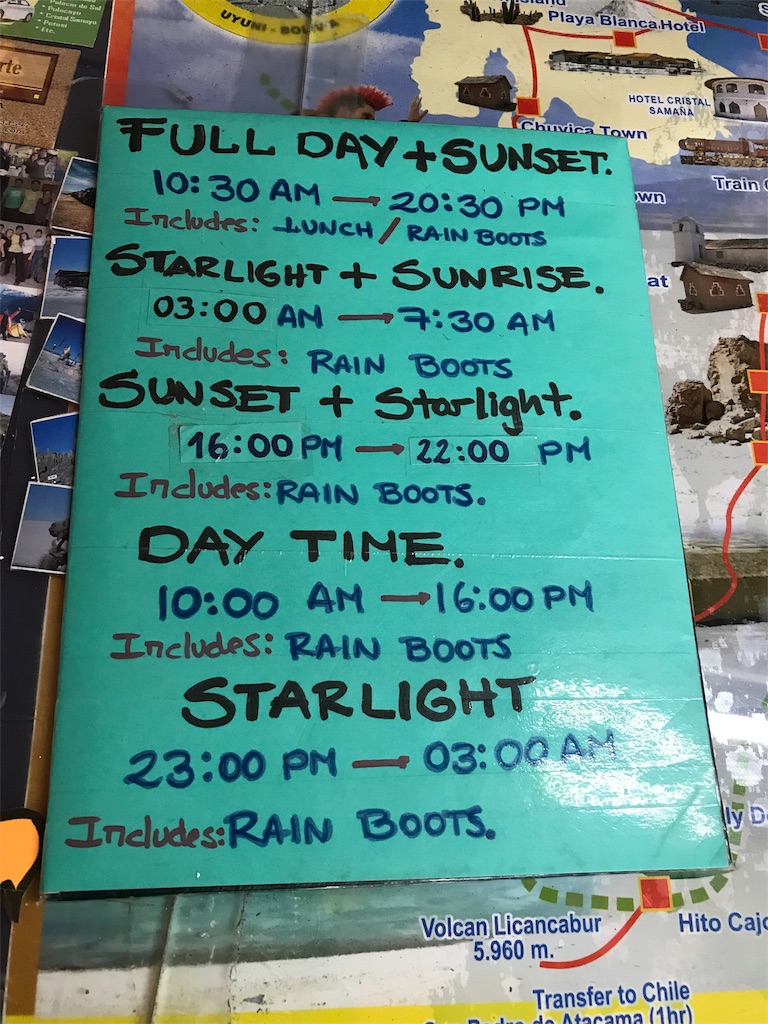 Palacio de Sal
Pulacayo
Cristal Samaya
Potosi
Etc.
UYUNI - BOLIVIA
Island
Playa Blanca Hotel
HOTEL CRISTAL
SAMAÑA
Chuvica Town
Train
FULL DAY + SUNSET.
10:30 AM → 20:30 PM
Includes: LUNCH / RAIN BOOTS
STARLIGHT + SUNRISE.
03:00 AM → 7:30 AM
Includes: RAIN BOOTS
SUNSET + Starlight.
16:00 PM → 22:00 PM
Includes: RAIN BOOTS.
DAY TIME.
10:00 AM → 16:00 PM
Includes: RAIN BOOTS
STARLIGHT
23:00 PM → 03:00 AM
Includes: RAIN BOOTS.
Volcan Licancabur
5.960 m.
Hito Cajo
Transfer to Chile
San Pedro de Atacama (1hr)